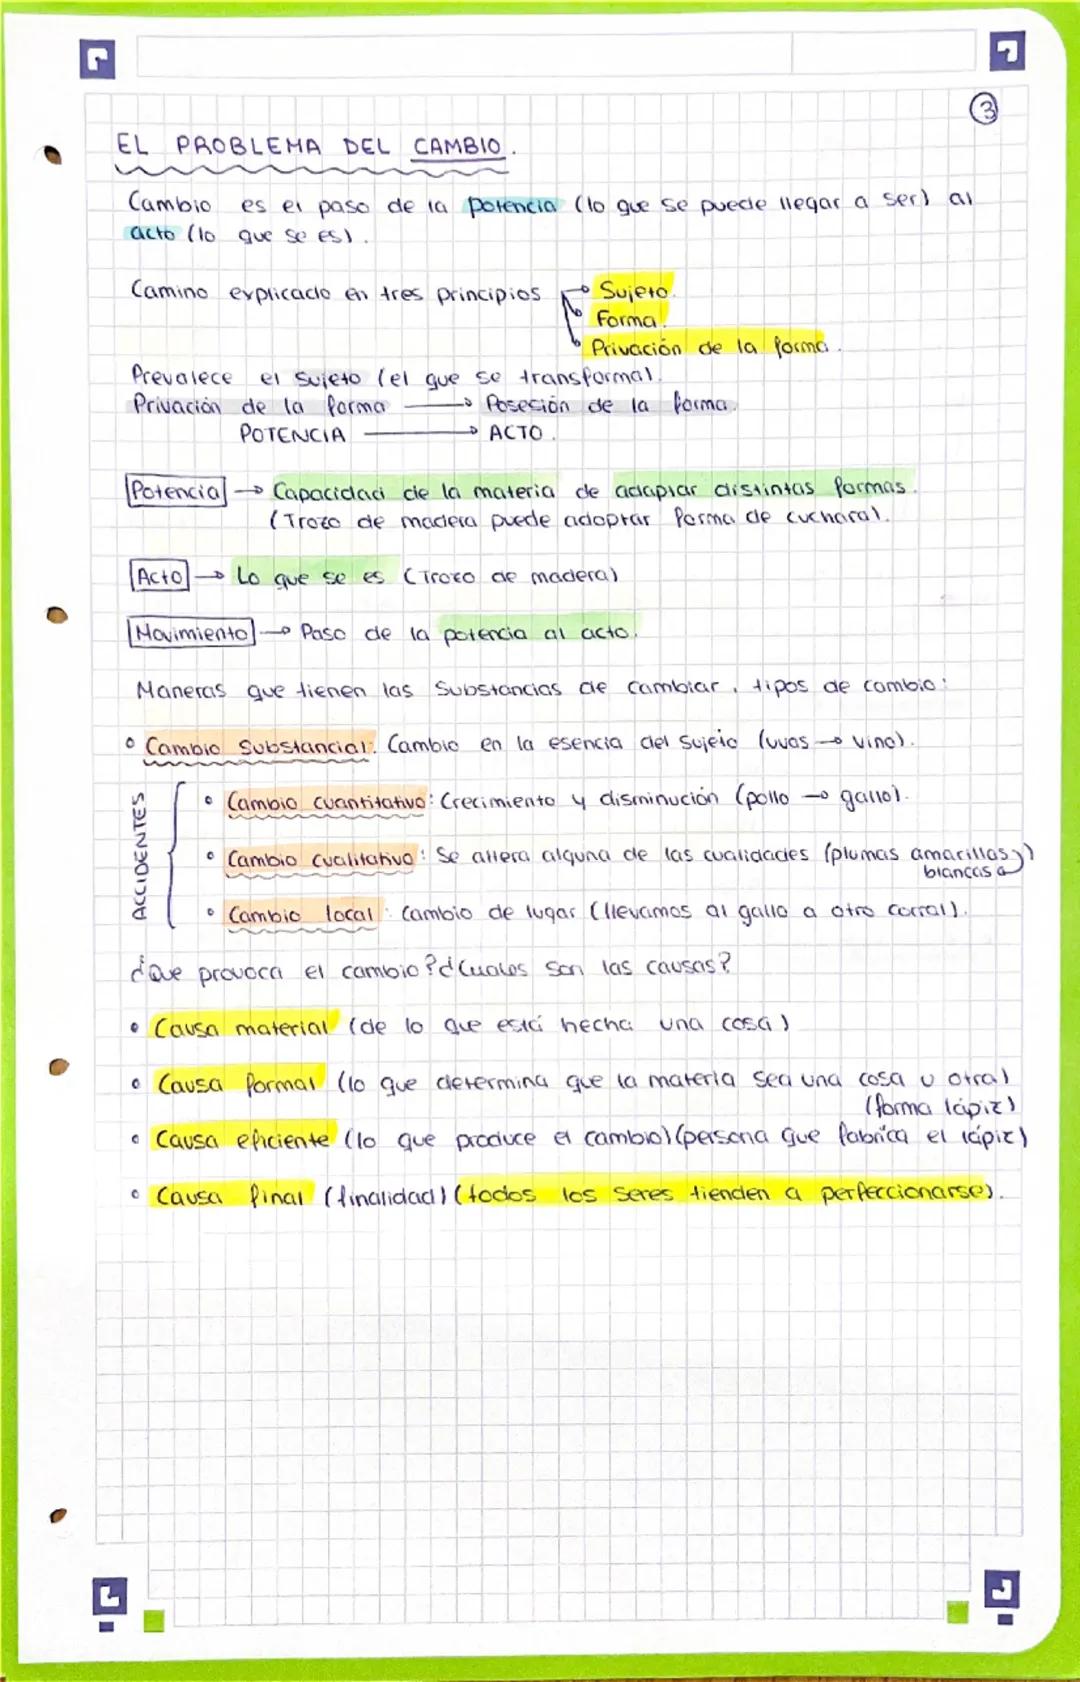 3
EL PROBLEMA DEL CAMBIO.
Cambio es el paso de la potencia (lo que se puede llegar a ser) al
acto (lo que se es).
Camino explicado en tres principios → Sujeto.
Forma.
Privación de la forma.
Prevalece el sujeto (el que se transforma).
Privación de la forma → Posesión de la forma.
POTENCIA → ACTO.
Potencia → Capacidad de la materia de adaptar distintas formas.
(Trozo de madera puede adoptrar forma de cuchara).
Acto → Lo que se es (Trozo de madera)
Movimiento → Paso de la potencia al acto.
Maneras que tienen las substancias de cambiar, tipos de cambio:
• Cambio substancial: Cambio en la esencia del sujeto (uvas → vino).
ACCIDENTES
• Cambio cuantitativo: Crecimiento y disminución (pollo → gallo).
• Cambio cualitativo: Se altera alguna de las cualidades (plumas amarillas)
blancas a
• Cambio local: Cambio de lugar (llevamos al gallo a otro corral).
¿Que provoca el cambio? ¿Cuales son las causas?
• Causa material (de lo que está hecha una cosa)
• Causa formal (lo que determina que la materia sea una cosa u otra)
(forma lápiz)
• Causa eficiente (lo que produce el cambio) (persona que fabrica el lápiz)
• Causa final (finalidad) (todos los seres tienden a perfeccionarse).